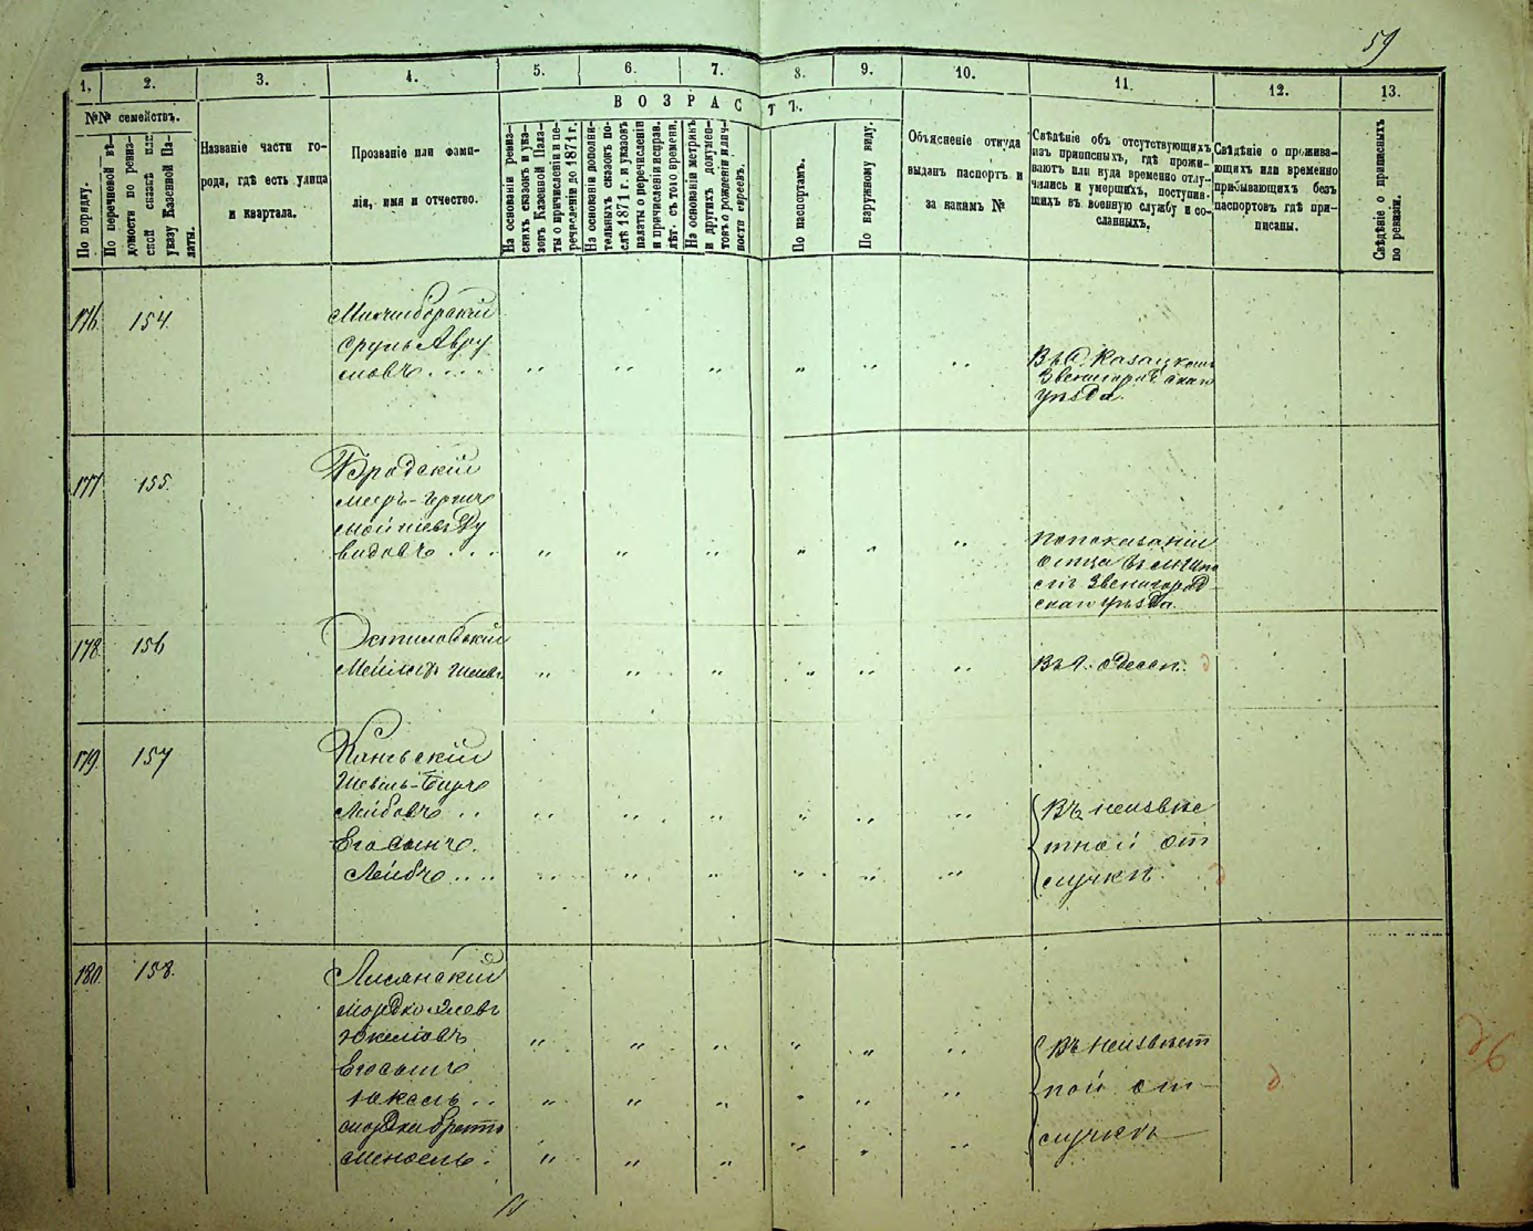 59
1. 2. 3. 4. 5. 6. 7. 8. 9. 10. 11. 12. 13.
№№ семействъ.
В О З Р А С Т Ъ.
По порядку.
По перечневой вѣ-
домости по ревиз-
ской сказкѣ или
указу Казенной Па-
латы.
Названіе части го-
рода, гдѣ есть улица
и квартала.
Прозваніе или фами-
лія, имя и отчество.
На основаніи ревиз-
скихъ сказокъ и ука-
зовъ Казенной Пала-
ты о причисленіи и пе-
речисленіи до 1871 г.
На основаніи дополни-
тельныхъ сказокъ по-
слѣ 1871 г. и указовъ
палаты о перечисленіи
и причисленіи исправ.
лѣт. съ того времени.
На основаніи метрикъ
и другихъ докумен-
товъ о рожденіи и лич-
ности евреевъ.
По паспортамъ.
По наружному виду.
Объясненіе откуда
выданъ паспортъ и
за какимъ №
Свѣдѣніе объ отсутствующихъ
изъ приписныхъ, гдѣ прожи-
ваютъ или куда временно отлу-
чились и умершихъ, поступив-
шихъ въ военную службу и со-
сланныхъ.
Свѣдѣніе о прожива-
ющихъ или временно
прибывающихъ безъ
паспортовъ гдѣ при-
писаны.
Свѣдѣніе о приписныхъ
по ревизіи.
176. 154.
Сруль Авру
мовъ . . . .
" " " " " "
Въ С. Казацкомъ
Звенигородскаго
уѣзда.
177 155.
Бродскій
Меръ-Герш
Мойшевъ Ду
видовъ . . .
" " " " " "
По показанію
отца въ
Звенигород
скаго уѣзда.
178. 156
" " " " " "
Въ г. Одессѣ.
179. 157
Каневскій
Шевель-Беръ
Лейбовъ . .
" " " " " "
Его сынъ
Лейбъ . . . .
" " " " " "
Въ неизвѣс
тной от
лучкѣ
180. 158.
Лисянскій
Мордко
Юкелювъ
" " " " " "
Его сынъ
Юкель . .
" " " " " "
Мордки братъ
Мендель .
" " " " " "
Въ неизвѣст
ной от-
лучкѣ